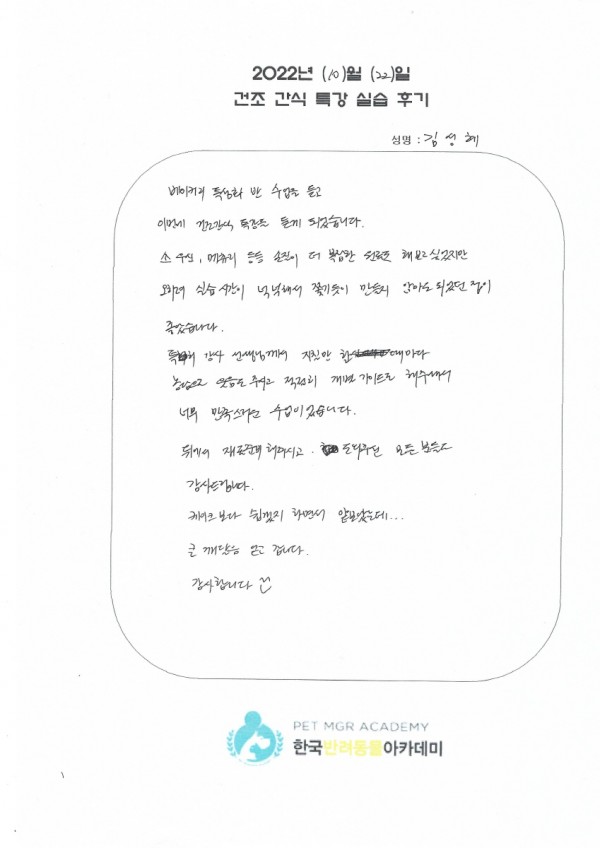 2022년 (10)월 (22)일
건조 간식 특강 실습 후기
성명 : 김성혜
베이커리 특성화 반 수업을 듣고
이번에 건조간식 특강도 듣게 되었습니다.
소 우신, 메츄리 등등 손질이 더 복잡한 원료도 해보고 싶었지만
오히려 실습시간이 넉넉해서 쫓기듯이 만들지 않아도 되었던 점이
좋았습니다.
강사 선생님께서 지칠만 할 때마다
농담으로 웃음도 주시고 적절히 개별 가이드도 해주셔서
너무 만족스러운 수업이었습니다.
뒤에서 재료준비 해주시고, 도와주신 모든 분들도
감사드립니다.
케이크보다 쉽겠지 하면서 얕보았는데...
큰 깨달음 얻고 갑니다.
감사합니다
PET MGR ACADEMY
한국반려동물아카데미